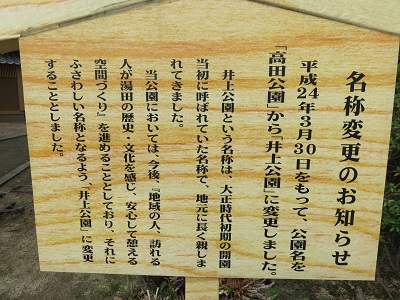 名称変更のお知らせ
平成24年3月30日をもって、公園名を
「高田公園」から「井上公園」に変更しました。
井上公園という名称は、大正時代初期の開園
当初に呼ばれていた名称で、地元に長く親しま
れてきました。
当公園においては、今後、『地域の人、訪れる
人が湯田の歴史・文化を感じ、安心して憩える
空間づくり』を進めることとしており、それに
ふさわしい名称となるよう、「井上公園」に変更
することとしました。